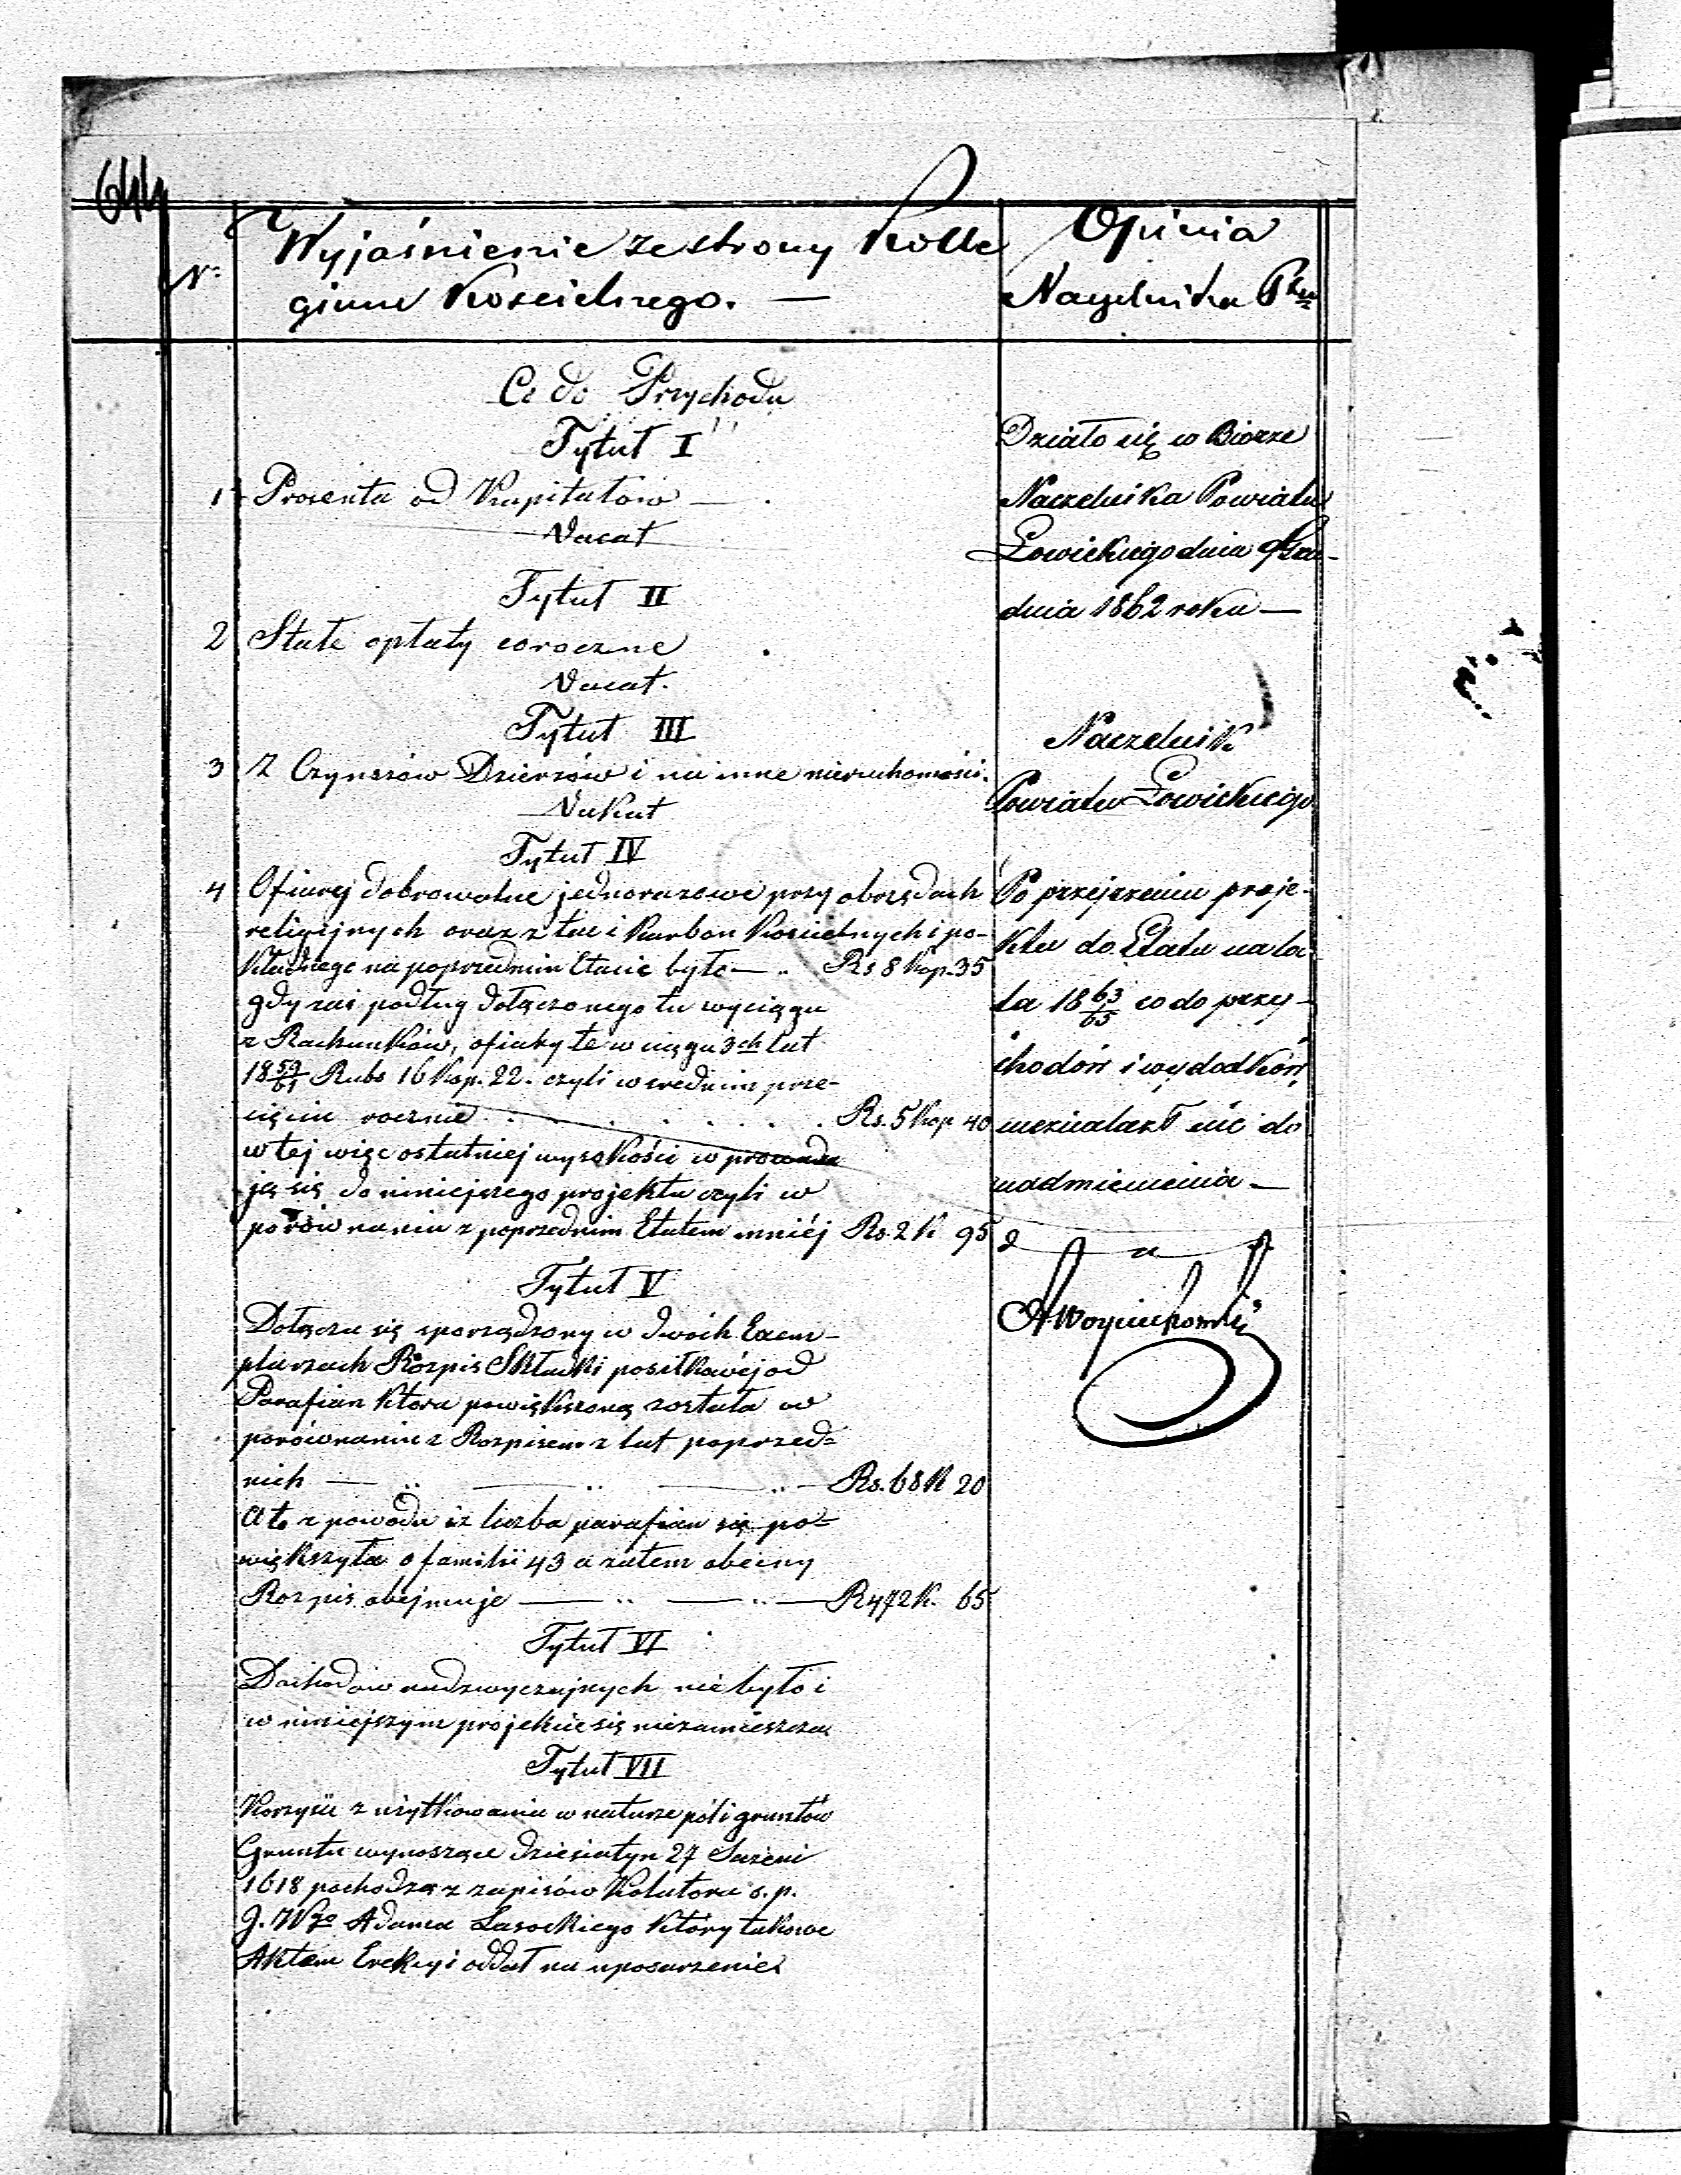 644
Nr
Wyjaśnienie ze strony Kolle
gium Kościelnego. —
Co do Przychodu
Tytuł I
1 Procenta od Kapitałów —
Vacat
Tytuł II
2 Stałe opłaty coroczne
Vacat.
Tytuł III
3 Z Czynszów Dzierżaw i na inne nieruchomości.
Vakat
Tytuł IV
4 Ofiary dobrowolne jednorazowe przy obrzędach
religijnych oraz z tac i karbon Kościelnych i po-
na poprzednim Etacie było — .. Rs 8 Kop. 35
gdy zaś podług dołączonego tu wyciągu
z Rachunków, ofiary te w ciągu 3ch lat
18 59/61 Rubs 16 Kop. 22. czyli w średnim prze-
cięciu rocznie . . . . . . . Rs. 5 Kop 40
w tej więc ostatniej wysokości wprowadza
ją się do niniejszego projektu czyli w
porównaniu z poprzednim Etatem mniéj Rs. 2 K 95
Tytuł V
Dołącza się sporządzony w dwóch Exem-
plarzach Rozpis Składki posiłkowéj od
Parafian która powiększoną została w
porównaniu z Rozpisem z lat poprzed=
nich — .. — .. — .. — Rs. 68 K 20
A to z powodu iż liczba parafian się po=
większyła o familii 43 a zatem obecny
Rozpis obejmuje — .. — .. — R 472 K. 65
Tytuł VI
Dochodów nadzwyczajnych nie było i
w niniejszym projekcie się niezamieszcza
Tytuł VII
Korzyści z użytkowania w naturze pól i gruntów
Gruntu wynoszące Dziesiatyn 27 Sażeni
1618 pochodzą z zapisów Kolatora s. p.
J. W go Adama Lasockiego który takowe
Aktem Erekcyi oddał na uposarzenie
Opinia
Naczelnika Ptu
Działo się w Biorze
Naczelnika Powiatu
Łowickiego dnia Gru-
dnia 1862 roku —
Naczelnik
Powiatu Łowickiego
Po przejrzeniu proje-
ktu do Etatu na la
ta 18 63/65 co do przy-
chodów i wydadków
nieznalazł nic do
nadmienienia —
A Woyciechowski